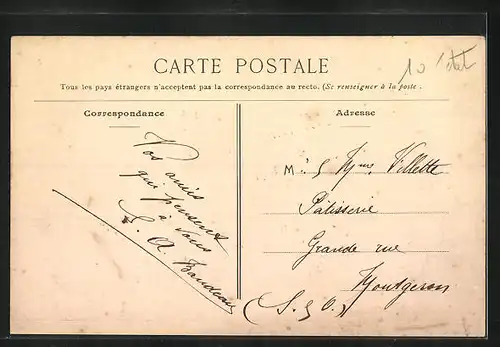 CARTE POSTALE
Tous les pays étrangers n'acceptent pas la correspondance au recto. (Se renseigner à la poste.
Correspondance
Adresse
Vos amis
qui pensent
à vous
Mr & Mme Villette
Patisserie
Grande rue
Montgeron
(S. & O.)